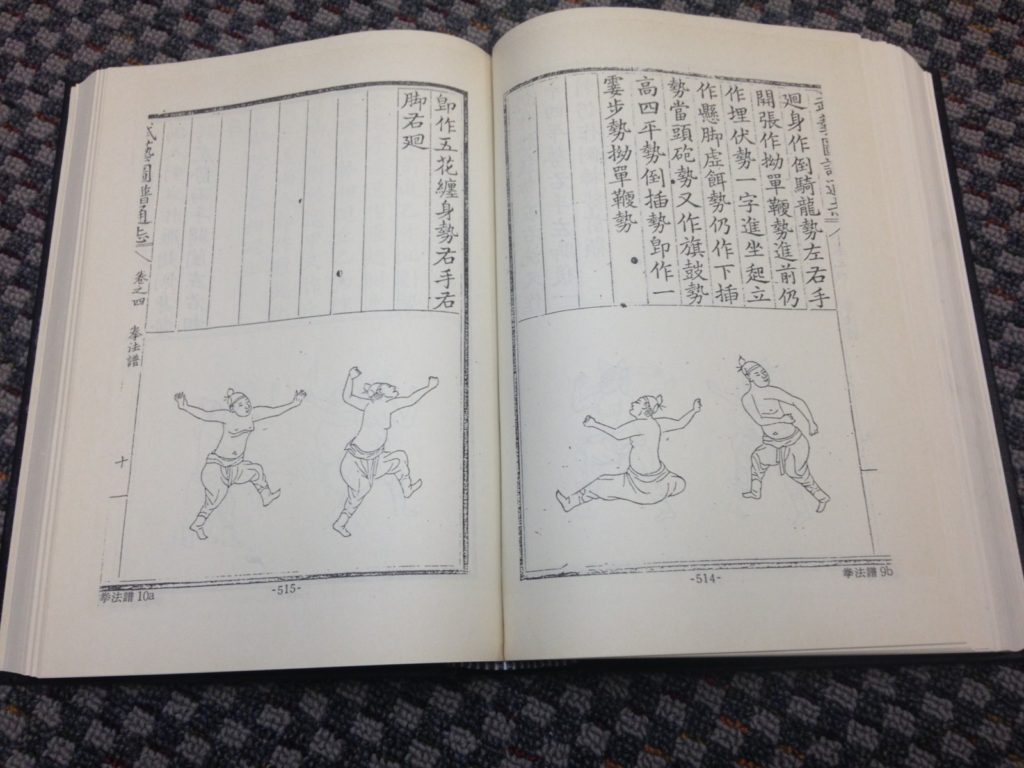 武藝圖譜通志
廻身作倒騎龍勢左右手
開張作拗單鞭勢進前仍
作埋伏勢一字進坐起立
作懸脚虛餌勢仍作下插
勢當頭砲勢又作旗鼓勢
高四平勢倒插勢卽作一
霎步勢拗單鞭勢
-514-
拳法譜 9b
卽作五花纏身勢右手右
脚右廻
武藝圖譜通志 卷之四 拳法譜 十
-515-
拳法譜 10a